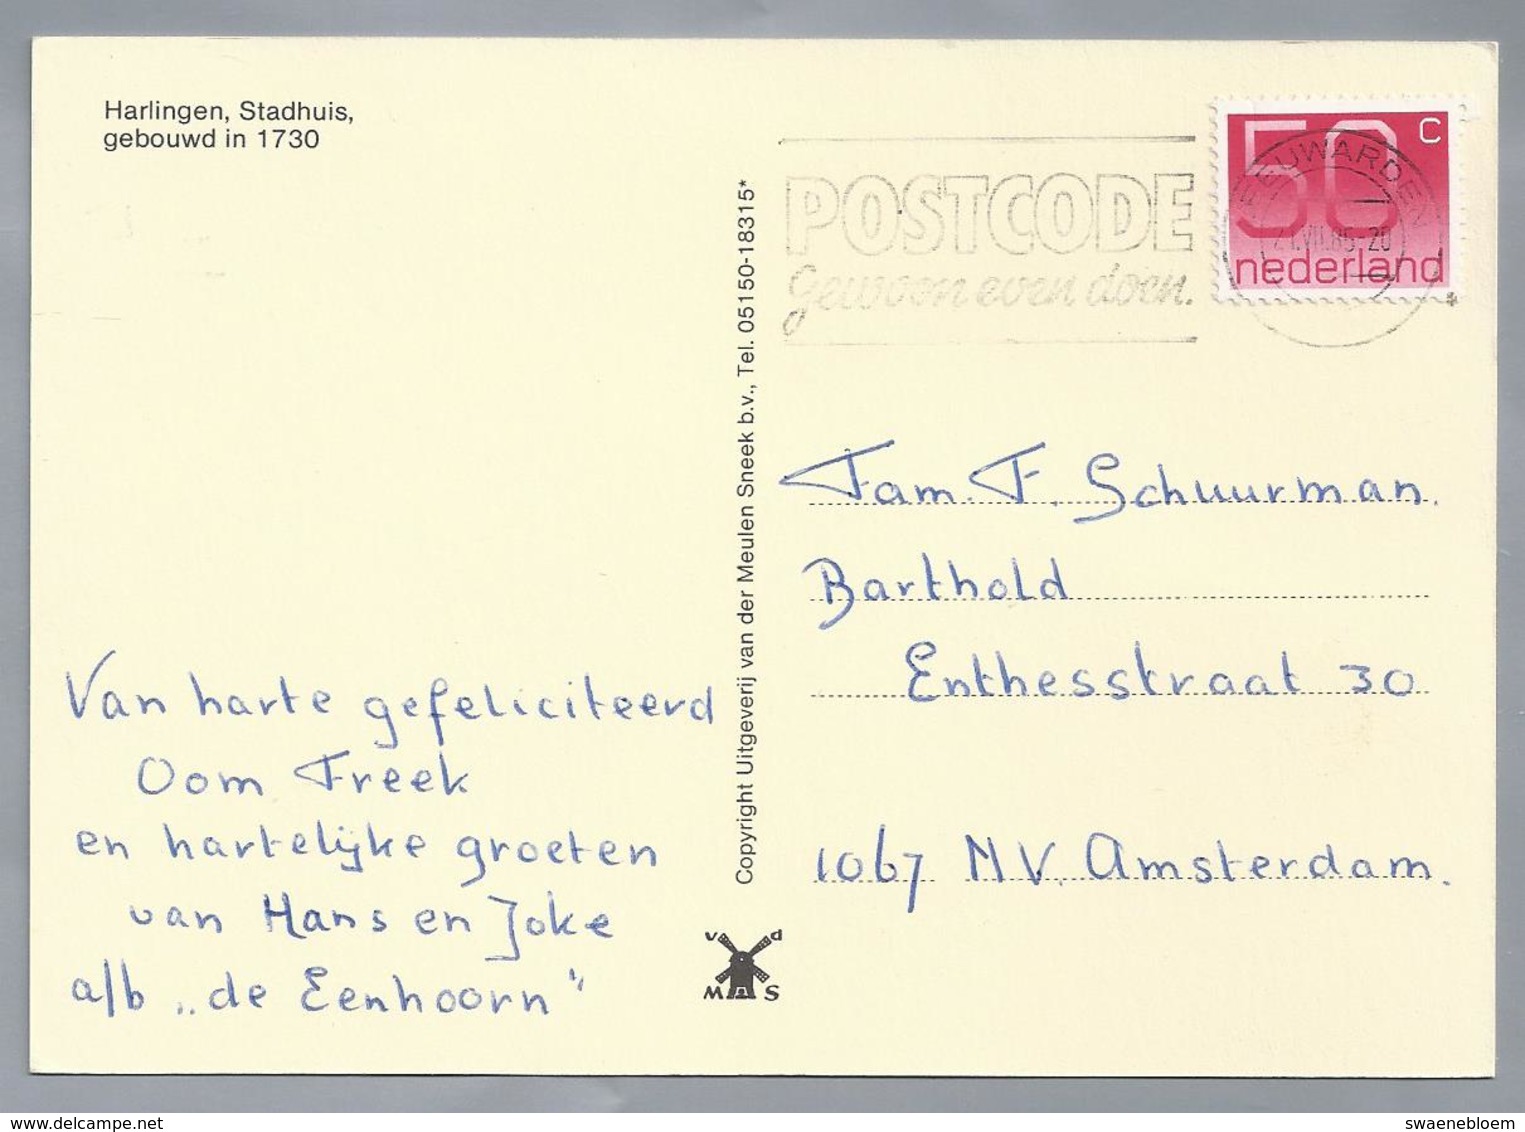 Harlingen, Stadhuis,
gebouwd in 1730
POSTCODE
gewoon even doen.
50 C
nederland
LEEUWARDEN
VII.85-20
Copyright Uitgeverij van der Meulen Sneek b.v., Tel. 05150-18315*
Fam. F. Schuurman.
Barthold
Enthesstraat 30
1067 MV. Amsterdam.
Van harte gefeliciteerd
Oom Freek
en hartelijke groeten
van Hans en Joke
a/b „de Eenhoorn"
v d
M S
www.delcampe.net
swaenebloem